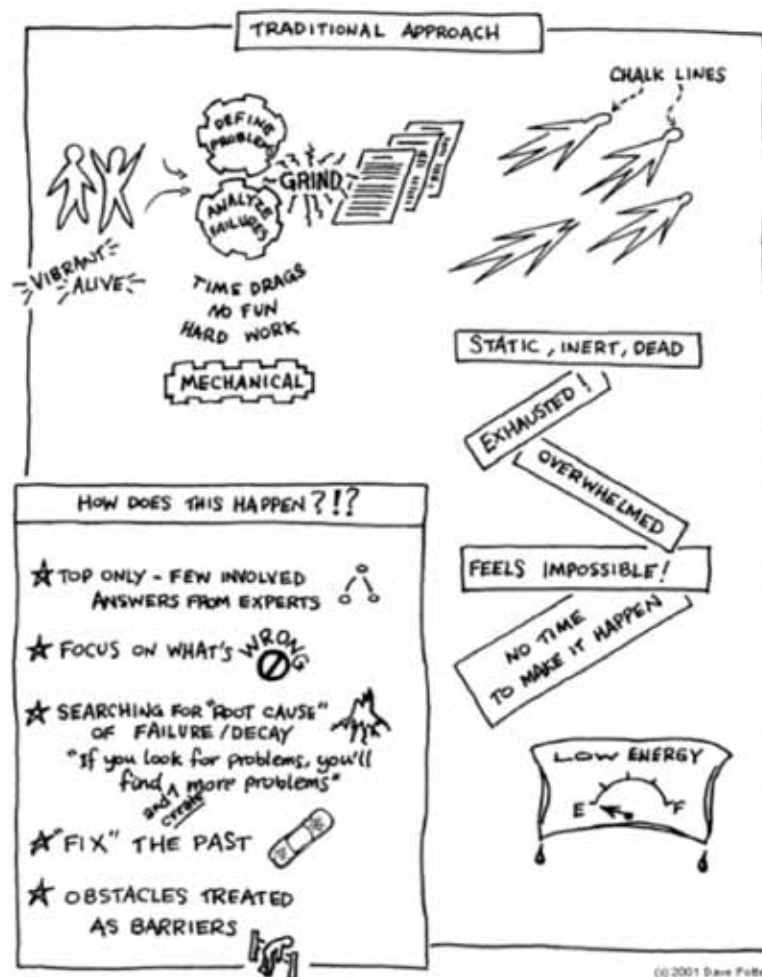 TRADITIONAL APPROACH
CHALK LINES
DEFINE
PROBLEM
GRIND
ANALYZE
FAILURES
VIBRANT
ALIVE
TIME DRAGS
NO FUN
HARD WORK
MECHANICAL
STATIC, INERT, DEAD
EXHAUSTED!
OVERWHELMED
FEELS IMPOSSIBLE!
NO TIME
TO MAKE IT HAPPEN
LOW ENERGY
E F
HOW DOES THIS HAPPEN?!?
TOP ONLY - FEW INVOLVED
ANSWERS FROM EXPERTS
FOCUS ON WHAT'S WRONG
SEARCHING FOR "ROOT CAUSE"
OF FAILURE/DECAY
"If you look for problems, you'll
find and create more problems"
"FIX" THE PAST
OBSTACLES TREATED
AS BARRIERS
(c) 2001 Dave